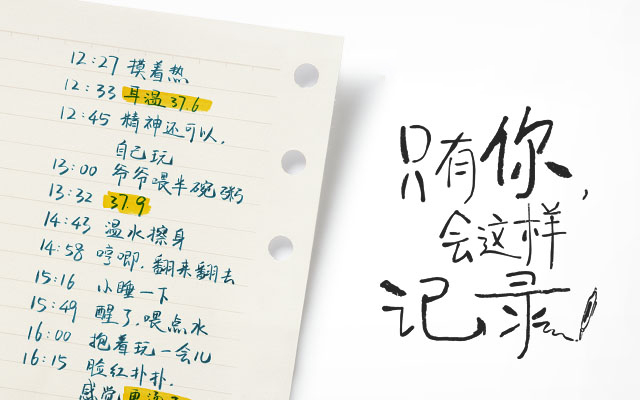 12:27 摸着热
12:33 耳温37.6
12:45 精神还可以,
自己玩
13:00 爷爷喂半碗粥
13:32 37.9
14:43 温水擦身
14:58 哼唧,翻来翻去
15:16 小睡一下
15:49 醒了,喂点水
16:00 抱着玩一会儿
16:15 脸红扑扑,
感觉
只有你,
会这样
记录